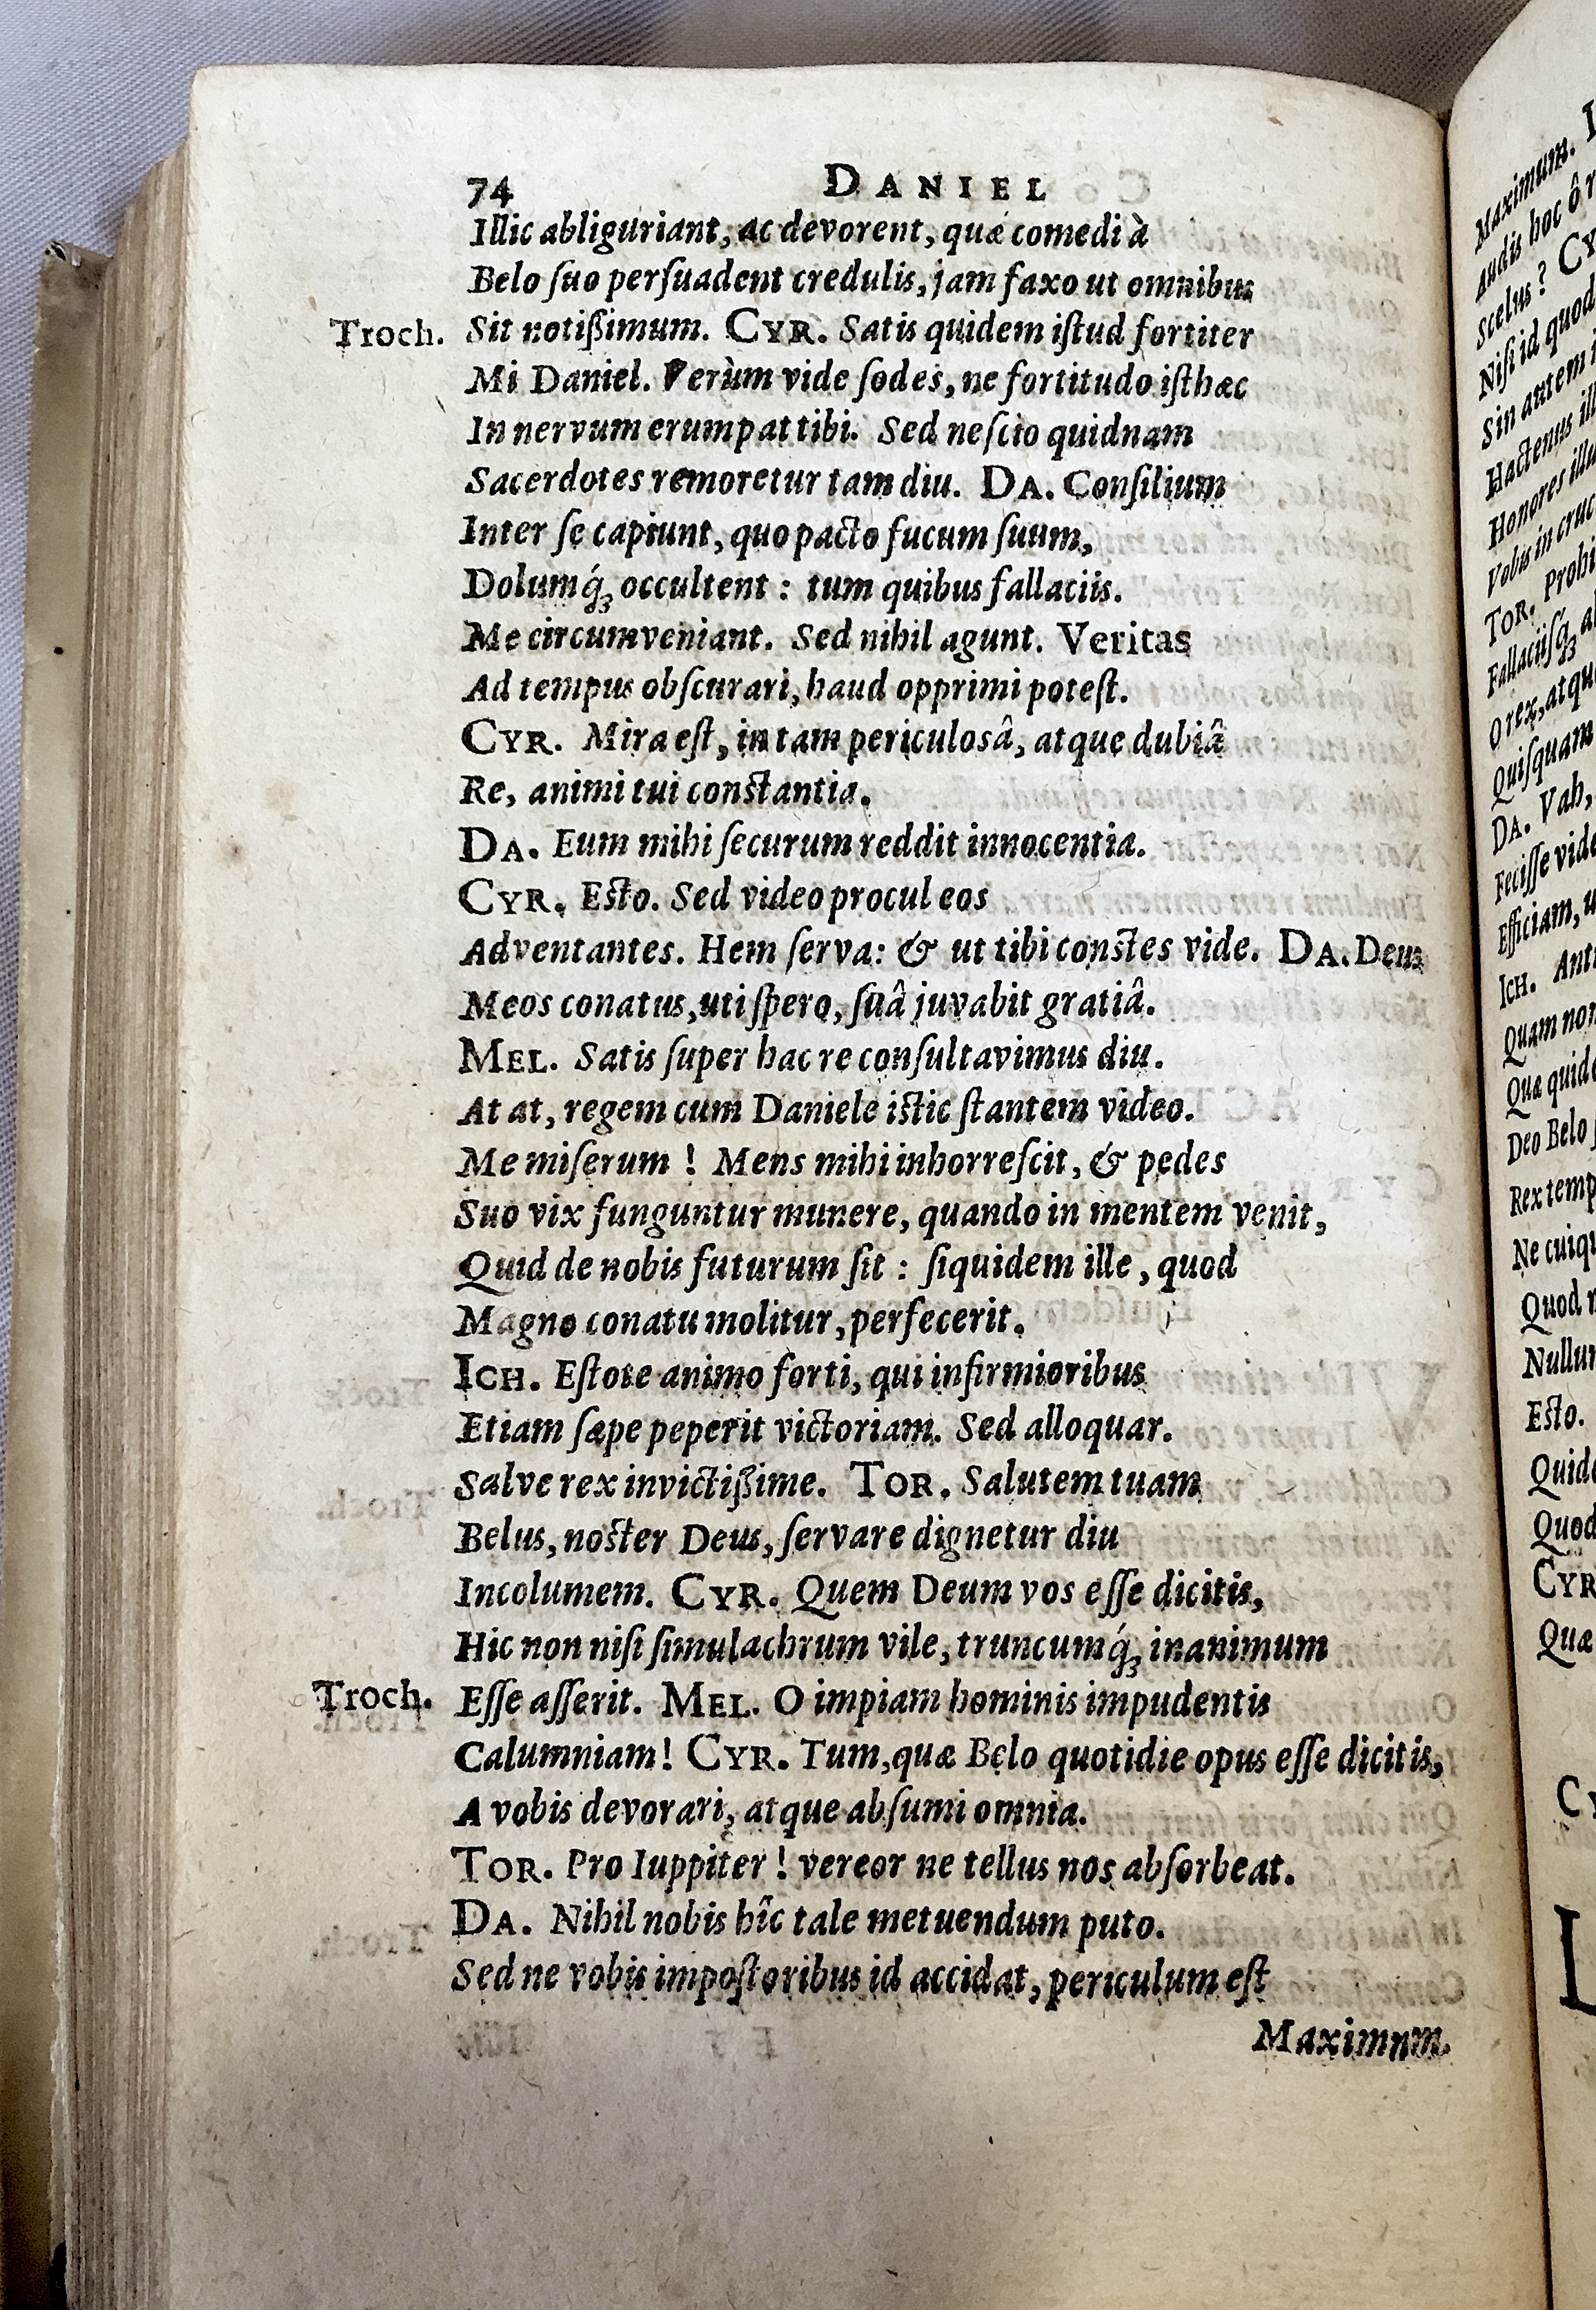 74 DANIEL
Illic abliguriant, ac devorent, quæ comedi à
Belo ſuo perſuadent credulis, jam faxo ut omnibus
Troch. Sit notißimum. CYR. Satis quidem iſtud fortiter
Mi Daniel. Verùm vide ſodes, ne fortitudo iſthæc
In nervum erumpat tibi. Sed neſcio quidnam
Sacerdotes remoretur tam diu. DA. Conſilium
Inter ſe capiunt, quo pacto fucum ſuum,
Dolumq́ꝫ occultent : tum quibus fallaciis.
Me circumveniant. Sed nihil agunt. Veritas
Ad tempus obſcurari, haud opprimi poteſt.
CYR. Mira eſt, in tam periculosâ, atque dubiâ
Re, animi tui conſtantia.
DA. Eum mihi ſecurum reddit innocentia.
CYR. Eſto. Sed video procul eos
Adventantes. Hem ſerva: & ut tibi conſtes vide. DA. Deus
Meos conatus, uti ſpero, ſuâ juvabit gratiâ.
MEL. Satis ſuper hac re conſultavimus diu.
At at, regem cum Daniele iſtic ſtantem video.
Me miſerum ! Mens mihi inhorreſcit, & pedes
Suo vix funguntur munere, quando in mentem venit,
Quid de nobis futurum ſit : ſiquidem ille, quod
Magno conatu molitur, perfecerit.
ICH. Eſtote animo forti, qui infirmioribus
Etiam ſæpe peperit victoriam. Sed alloquar.
Salve rex invictißime. TOR. Salutem tuam
Belus, noſter Deus, ſervare dignetur diu
Incolumem. CYR. Quem Deum vos eſſe dicitis,
Hic non niſi ſimulachrum vile, truncumq́ꝫ inanimum
Troch. Eſſe aſſerit. MEL. O impiam hominis impudentis
Calumniam! CYR. Tum, quæ Belo quotidie opus eſſe dicitis,
A vobis devorari, atque abſumi omnia.
TOR. Pro Iuppiter ! vereor ne tellus nos abſorbeat.
DA. Nihil nobis hîc tale metuendum puto.
Sed ne vobis impoſtoribus id accidat, periculum eſt
Maximum.
Maximum.
Audis hoc ô
Scelus ? CY
Niſi id quod
Sin autem
Hactenus
Honores
Vobis in cruc
TOR. Prohi
Fallaciiſq́ꝫ
O rex, atqu
Quiſquam
DA. Vah,
Feciſſe vide
Efficiam, u
ICH. Ant
Quam non
Quæ quid
Deo Belo
Rex temp
Ne cuiqu
Quod
Nullum
Eſto.
Quid
Quod
CYR
Quæ